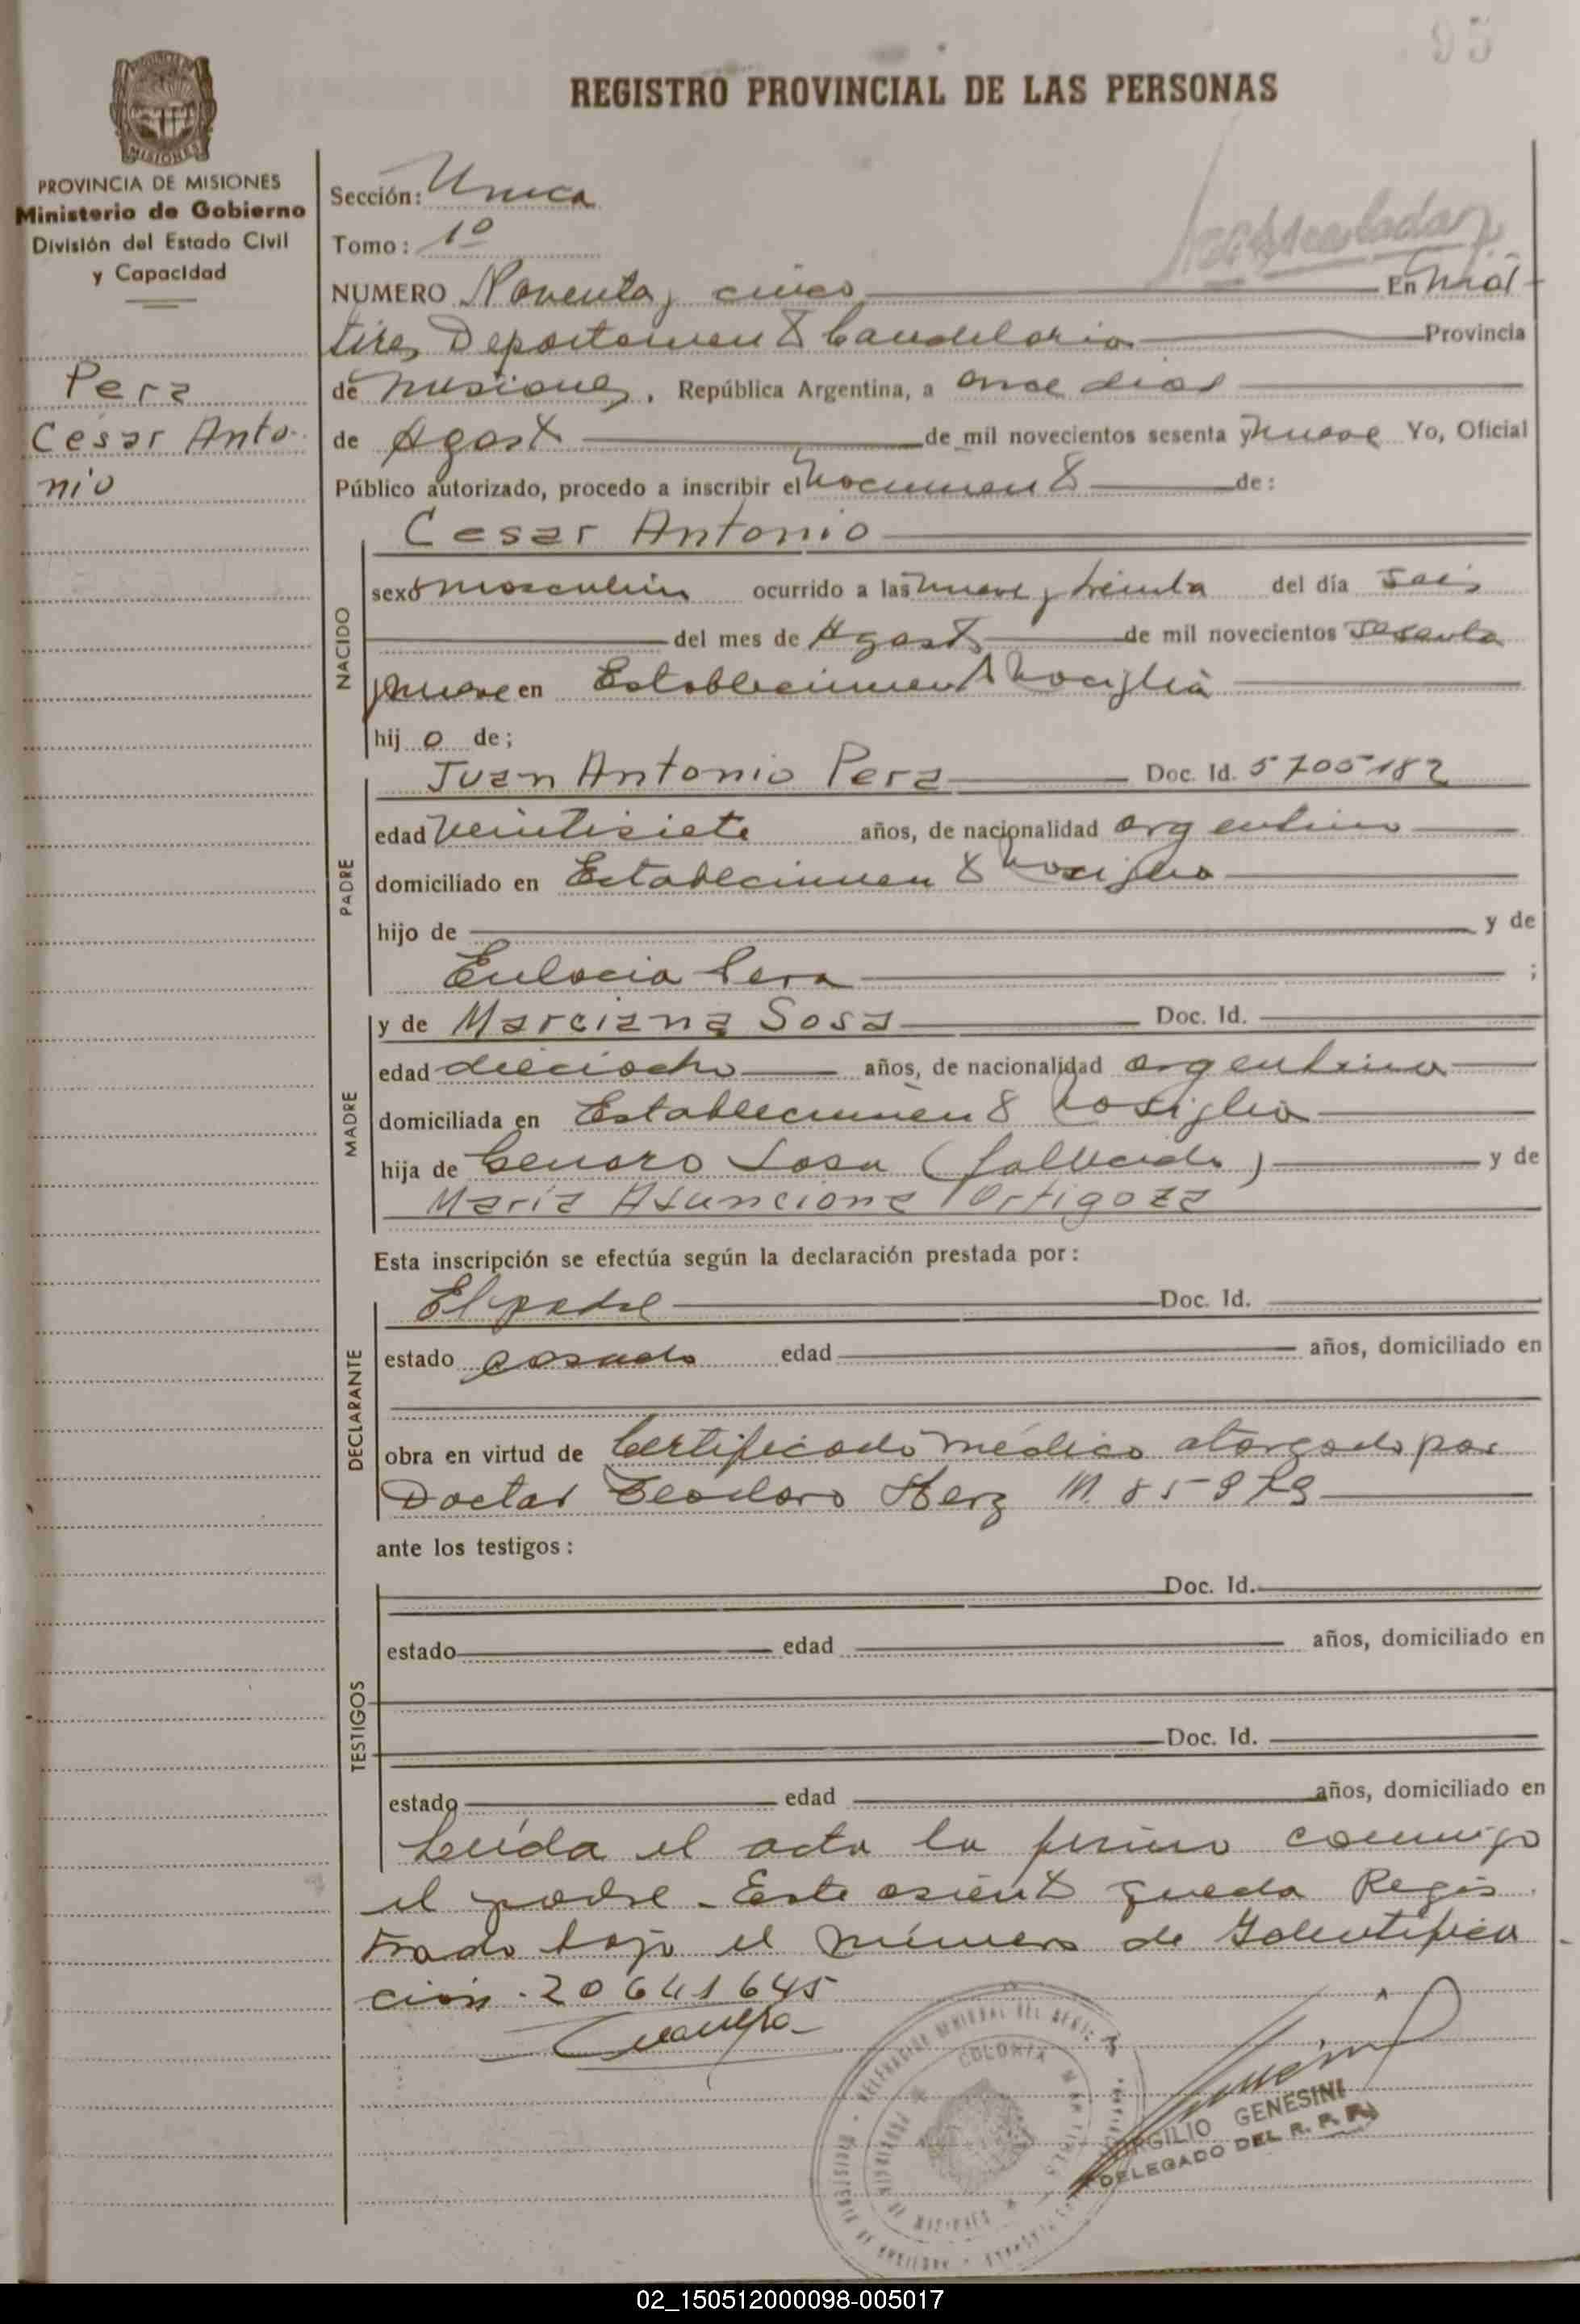 95
REGISTRO PROVINCIAL DE LAS PERSONAS
MISIONES
PROVINCIA DE MISIONES
Ministerio de Gobierno
División del Estado Civil
y Capacidad
Pera
César Anto-
nio
Sección: Unica
Tomo: 1º
NUMERO Noventa y cinco En Már
tires Departamento Candelaria Provincia
de Misiones, República Argentina, a once dias
de Agosto de mil novecientos sesenta y nueve Yo, Oficial
Público autorizado, procedo a inscribir el nacimiento de:
Cesar Antonio
NACIDO
sexo masculino ocurrido a las nueve y treinta del día seis
del mes de Agosto de mil novecientos sesenta
y nueve en Establecimiento
hij o de;
Juan Antonio Pera Doc. Id. 5705182
PADRE
edad veintisiete años, de nacionalidad argentino
domiciliado en Establecimiento
hijo de y de
Eulocia Pera ;
MADRE
y de Marciana Sosa Doc. Id.
edad dieciocho años, de nacionalidad argentina
domiciliada en Establecimiento
hija de Genaro Sosa (fallecido) y de
María Asunciona Ortigoza
Esta inscripción se efectúa según la declaración prestada por:
DECLARANTE
El padre Doc. Id.
estado casado edad años, domiciliado en
obra en virtud de Certificado médico otorgado por
Doctor Teodoro Herz M.
ante los testigos:
TESTIGOS
Doc. Id.
estado edad años, domiciliado en
Doc. Id.
estado edad años, domiciliado en
Leída el acta la firma conmigo
el padre - Este asiento queda Regis
trado bajo el número de Identifica
ción. 20641645
COLONIA MARTIRES
PROVINCIA DE MISIONES
VIRGILIO GENESINI
DELEGADO DEL R. P. P.
02_150512000098-005017